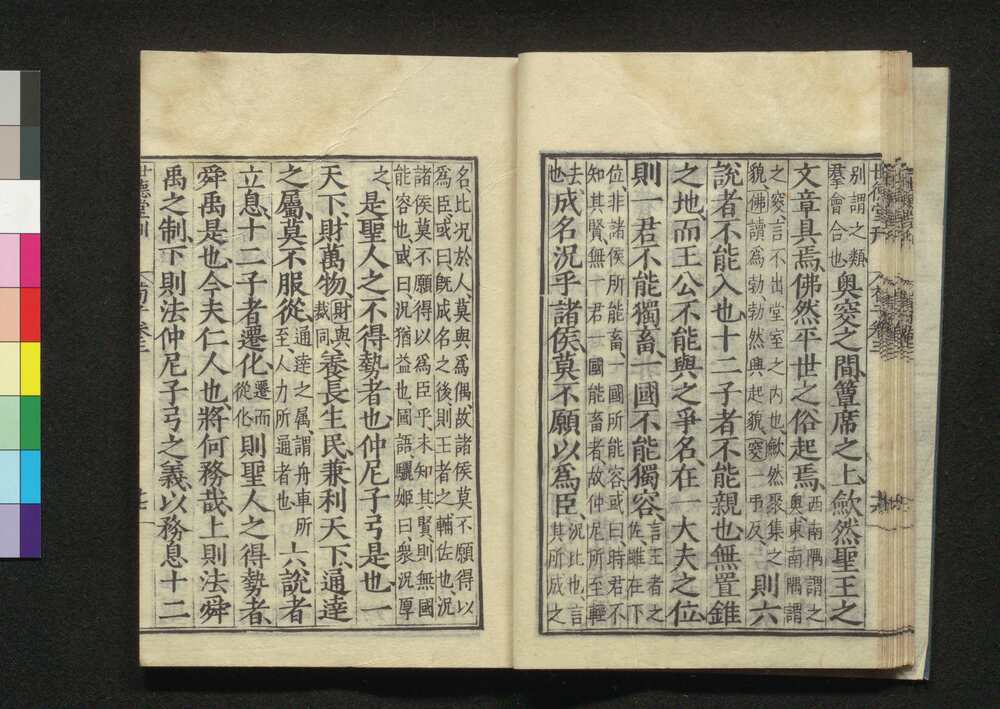 世德堂刊
別謂之類
羣會合也奧窔之間簟席之上歛然聖王之
文章具焉佛然平世之俗起焉西南隅謂之
奧東南隅謂
之窔言不出堂室之內也歛然聚集之
貌佛讀爲勃勃然興起貌窔一弔反則六
說者不能入也十二子者不能親也無置錐
之地而王公不能與之爭名在一大夫之位
則一君不能獨畜一國不能獨容言王者之
佐雖在下
位非諸侯所能畜一國所能容或曰時君不
知其賢無一君一國能畜者故仲尼所至輕
去也成名況乎諸侯莫不願以爲臣況比也言
其所成之
名比況於人莫與爲偶故諸侯莫不願得以
爲臣或曰旣成名之後則王者之輔佐也況
諸侯莫不願得以爲臣乎未知其賢則無國
能容也或曰況猶益也國語驪姬曰衆況厚
之是聖人之不得勢者也仲尼子弓是也一
天下財萬物財與
裁同養長生民兼利天下通達
之屬莫不服從通達之属謂舟車所
至人力所通者也六說者
立息十二子者遷化遷而
從化則聖人之得勢者
舜禹是也今夫仁人也將何務哉上則法舜
禹之制下則法仲尼子弓之義以務息十二
世德堂刊